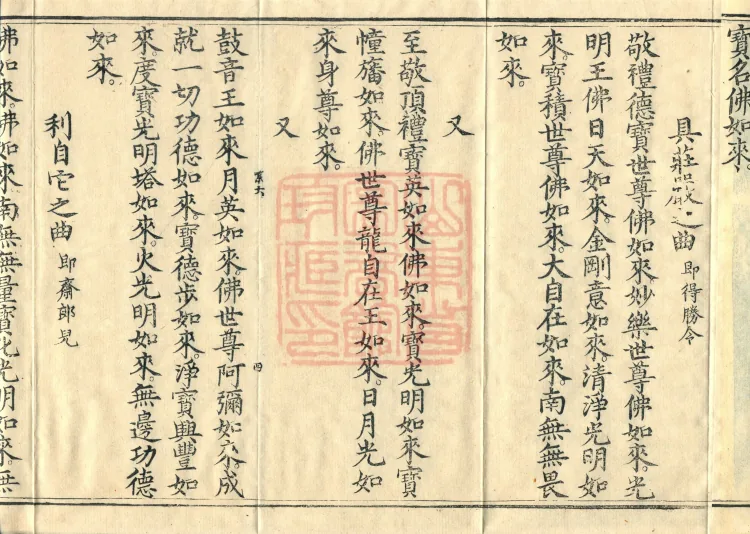 寶名佛如來。
具莊嚴之曲 即得勝令
敬禮德寶世尊佛如來。妙樂世尊佛如來。光
明王佛日天如來。金剛意如來。清淨光明如
來。寶積世尊佛如來。大自在如來。南無無畏
如來。
又
至敬頂禮寶英如來佛如來。寶光明如來寶
幢旛如來。佛世尊龍自在王如來。日月光如
來身尊如來。
又
六 四
鼓音王如來月英如來。佛世尊阿彌如來。成
就一切功德如來。寶德步如來。淨寶興豐如
來度寶光明塔如來。火光明如來。無邊功德
如來。
利自它之曲 即齋郎兒
佛如來佛如來南無無量寶化光明如來。無